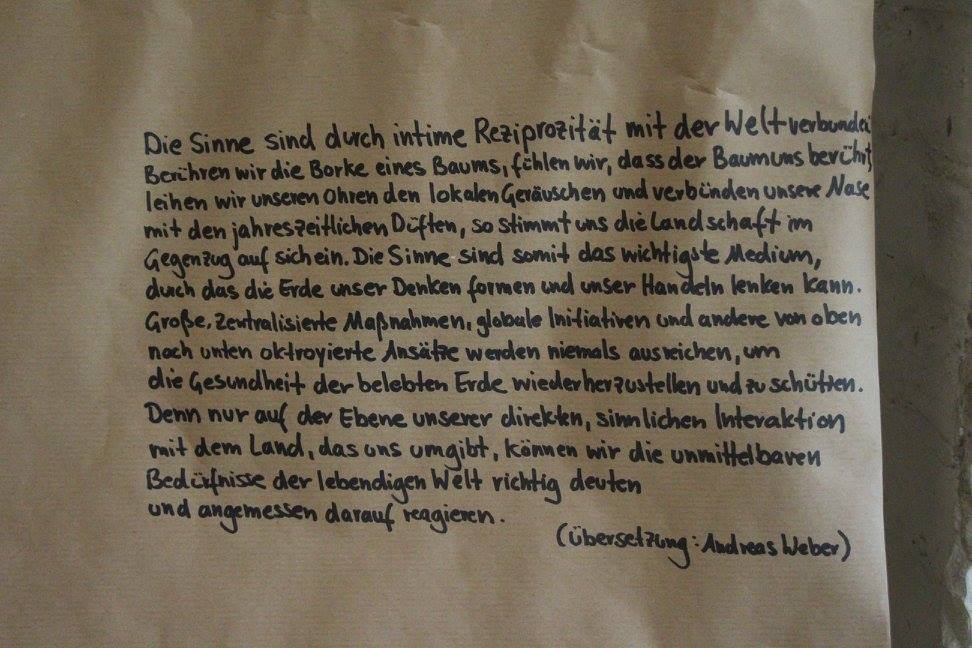 Die Sinne sind durch intime Reziprozität mit der Welt verbunden
Berühren wir die Borke eines Baums, fühlen wir, dass der Baum uns berührt,
leihen wir unseren Ohren den lokalen Geräuschen und verbünden unsere Nase
mit den jahreszeitlichen Düften, so stimmt uns die Landschaft im
Gegenzug auf sich ein. Die Sinne sind somit das wichtigste Medium,
durch das die Erde unser Denken formen und unser Handeln lenken kann.
Große, zentralisierte Maßnahmen, globale Initiativen und andere von oben
nach unten oktroyierte Ansätze werden niemals ausreichen, um
die Gesundheit der belebten Erde wiederherzustellen und zu schützen.
Denn nur auf der Ebene unserer direkten, sinnlichen Interaktion
mit dem Land, das uns umgibt, können wir die unmittelbaren
Bedürfnisse der lebendigen Welt richtig deuten
und angemessen darauf reagieren.
(Übersetzung: Andreas Weber)